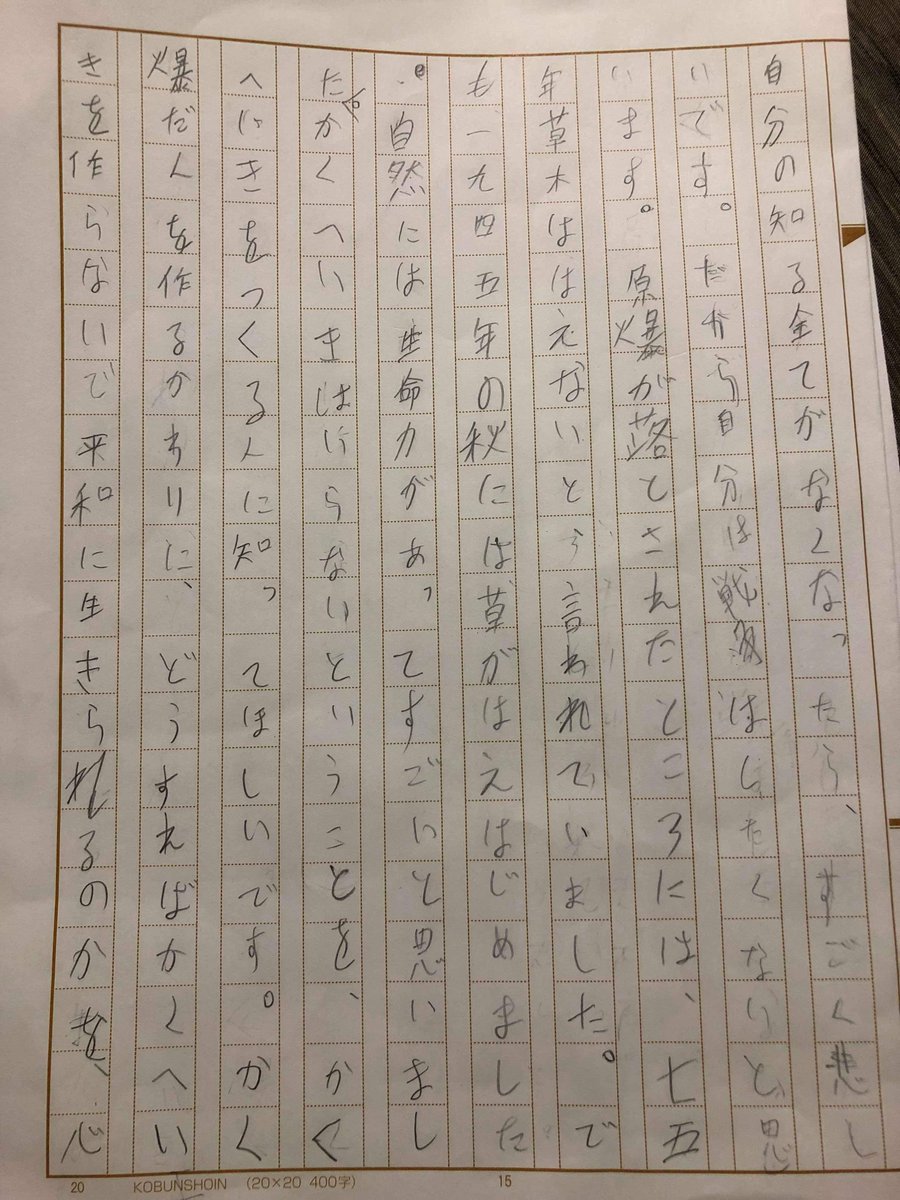 自分の知る全てがなくなったら、すごく悲し
いです。だから自分は戦争はしたくないと思
います。原爆が落とされたところには、七五
年草木ははえないとう言われていました。で
も一九四五年の秋には草がはえはじめました
。自然には生命力があってすごいと思いまし
た。かくへいきはいらないということを、かく
へいきをつくる人に知ってほしいです。かく
爆だんを作るかわりに、どうすればかくへい
きを作らないで平和に生きられるのかを、心
20 KOBUNSHOIN (20×20 400字) 15